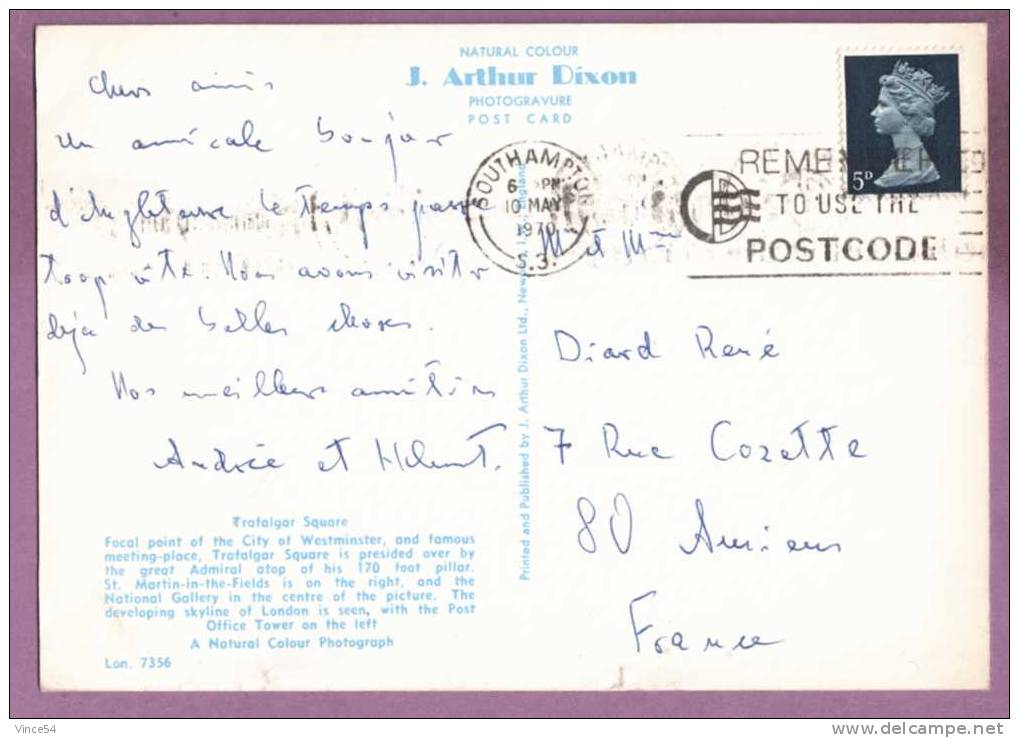 NATURAL COLOUR
J. Arthur Dixon
PHOTOGRAVURE
POST CARD
Chers amis
Un amicale bonjour
d'Angleterre le temps passe
trop vite. Nous avons visiter
deja des belles choses.
Nos meilleurs amitiés
Andrée et Helmut.
Trafalgar Square
Focal point of the City of Westminster, and famous
meeting-place, Trafalgar Square is presided over by
the great Admiral atop of his 170 foot pillar.
St. Martin-in-the-Fields is on the right, and the
National Gallery in the centre of the picture. The
developing skyline of London is seen, with the Post
Office Tower on the left
A Natural Colour Photograph
Lon. 7356
Printed and Published by J. Arthur Dixon Ltd., Newport, I.W., England
SOUTHAMPTON
6 PM
10 MAY
1970
S.3.
REMEMBER
TO USE THE
POSTCODE
5D
M et Mme
Diard René
7 Rue Cozette
80 Amiens
France
Vince54